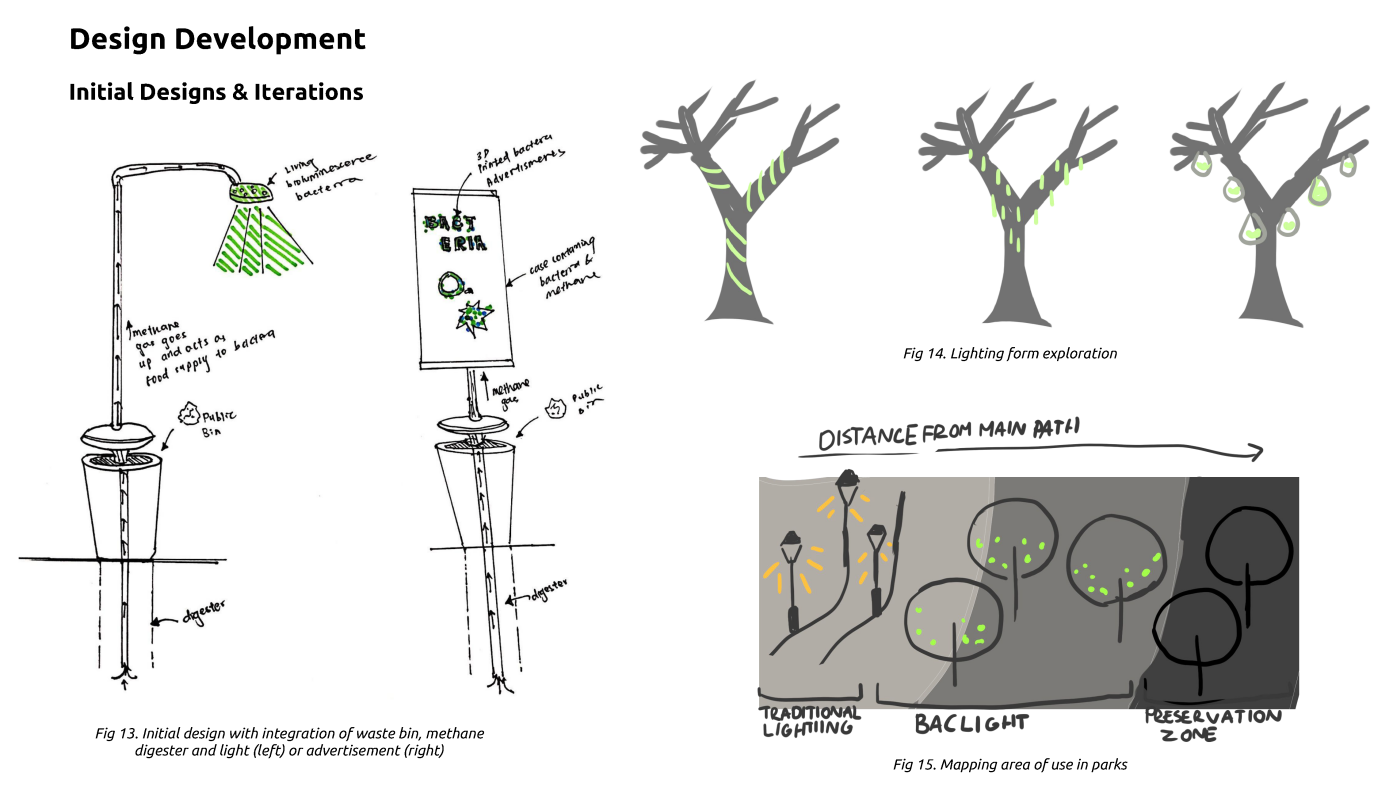 Design Development
Initial Designs & Iterations
Living
bioluminescence
bacteria
methane
gas goes
up and acts as
food supply to bacteria
Public
Bin
digester
3D
Printed bacteria
Advertisments
BACT
ERIA
case containing
bacteria &
methane
methane
gas
Public
Bin
digester
Fig 13. Initial design with integration of waste bin, methane
digester and light (left) or advertisement (right)
Fig 14. Lighting form exploration
DISTANCE FROM MAIN PATH
TRADITIONAL
LIGHTIING
BACLIGHT
PRESERVATION
ZONE
Fig 15. Mapping area of use in parks